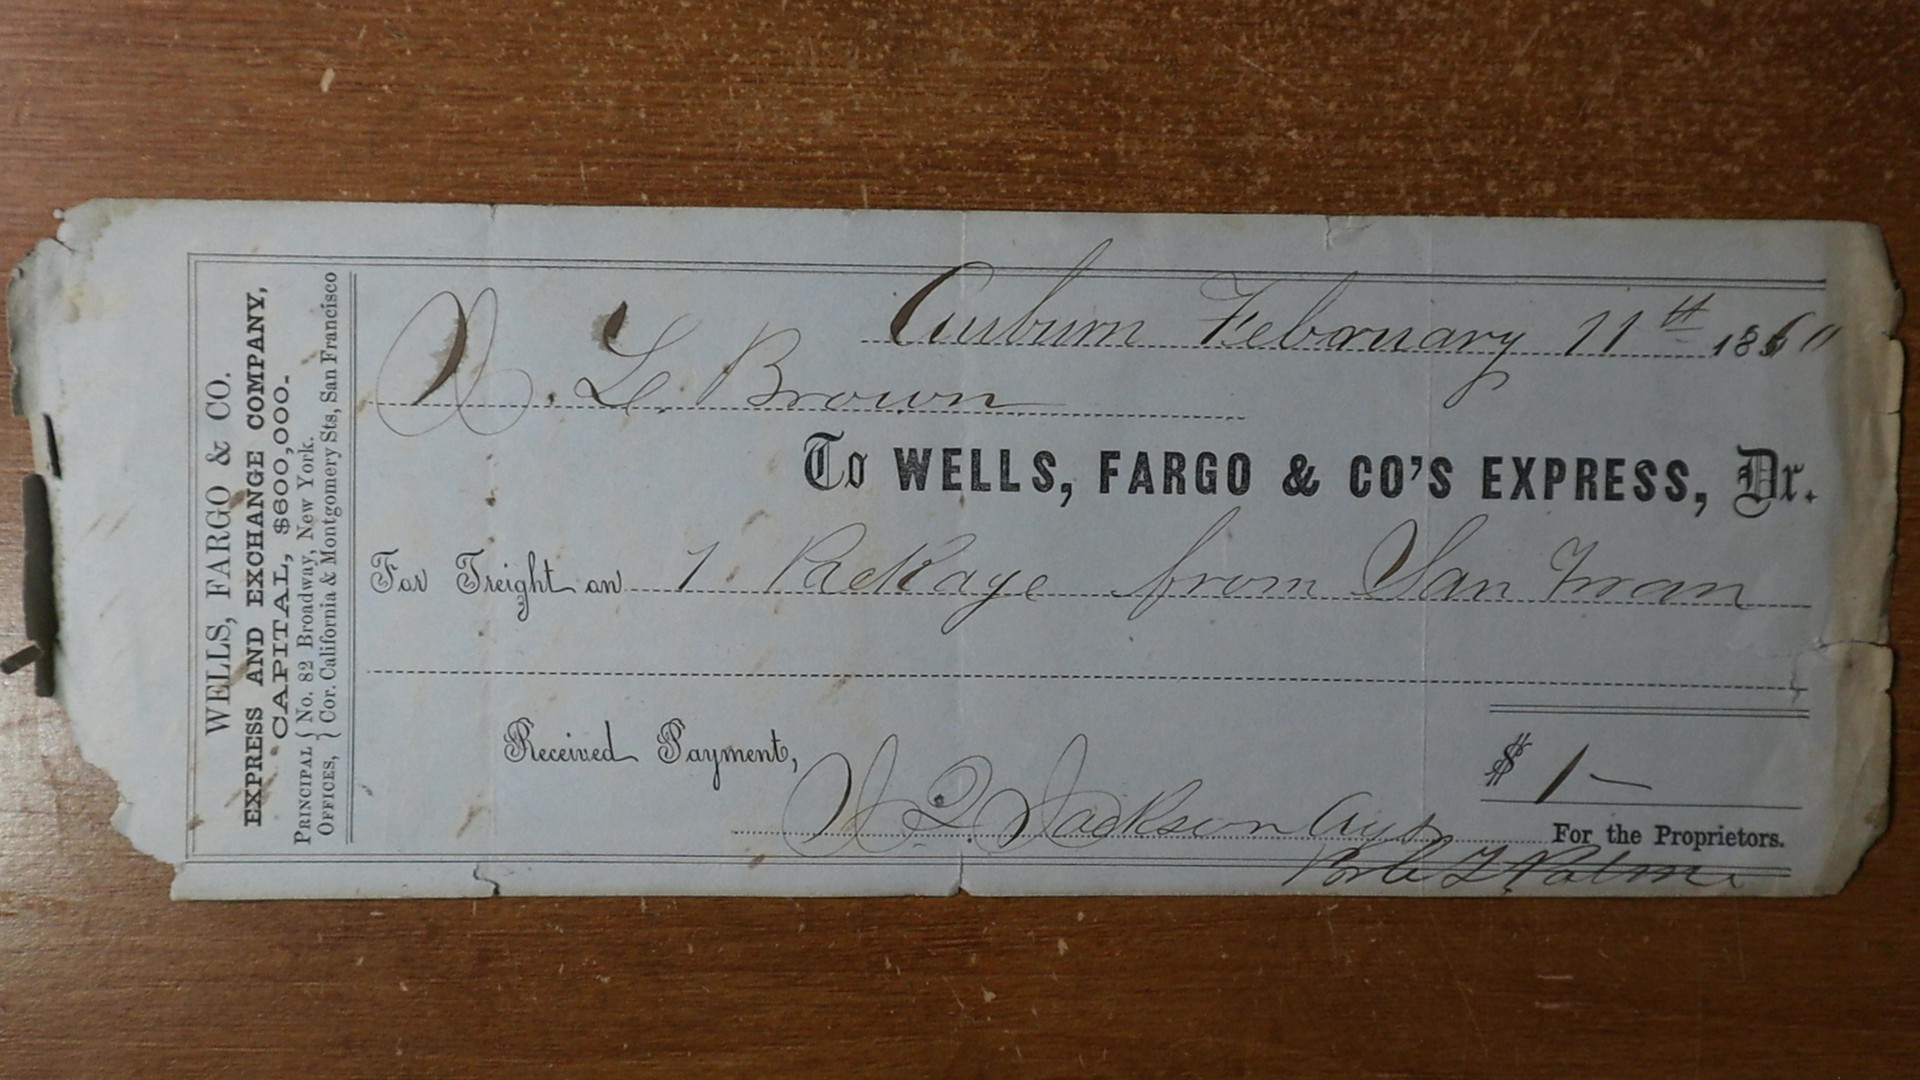 WELLS, FARGO & CO.
EXPRESS AND EXCHANGE COMPANY,
CAPITAL, $600,000.
PRINCIPAL OFFICES, { No. 82 Broadway, New York.
} Cor. California & Montgomery Sts, San Francisco
Auburn February 11th 1860
L. Brown
To WELLS, FARGO & CO'S EXPRESS, Dr.
For Freight on 1 Package from San Fran
Received Payment,
$ 1 —
Jackson Agt
For the Proprietors.